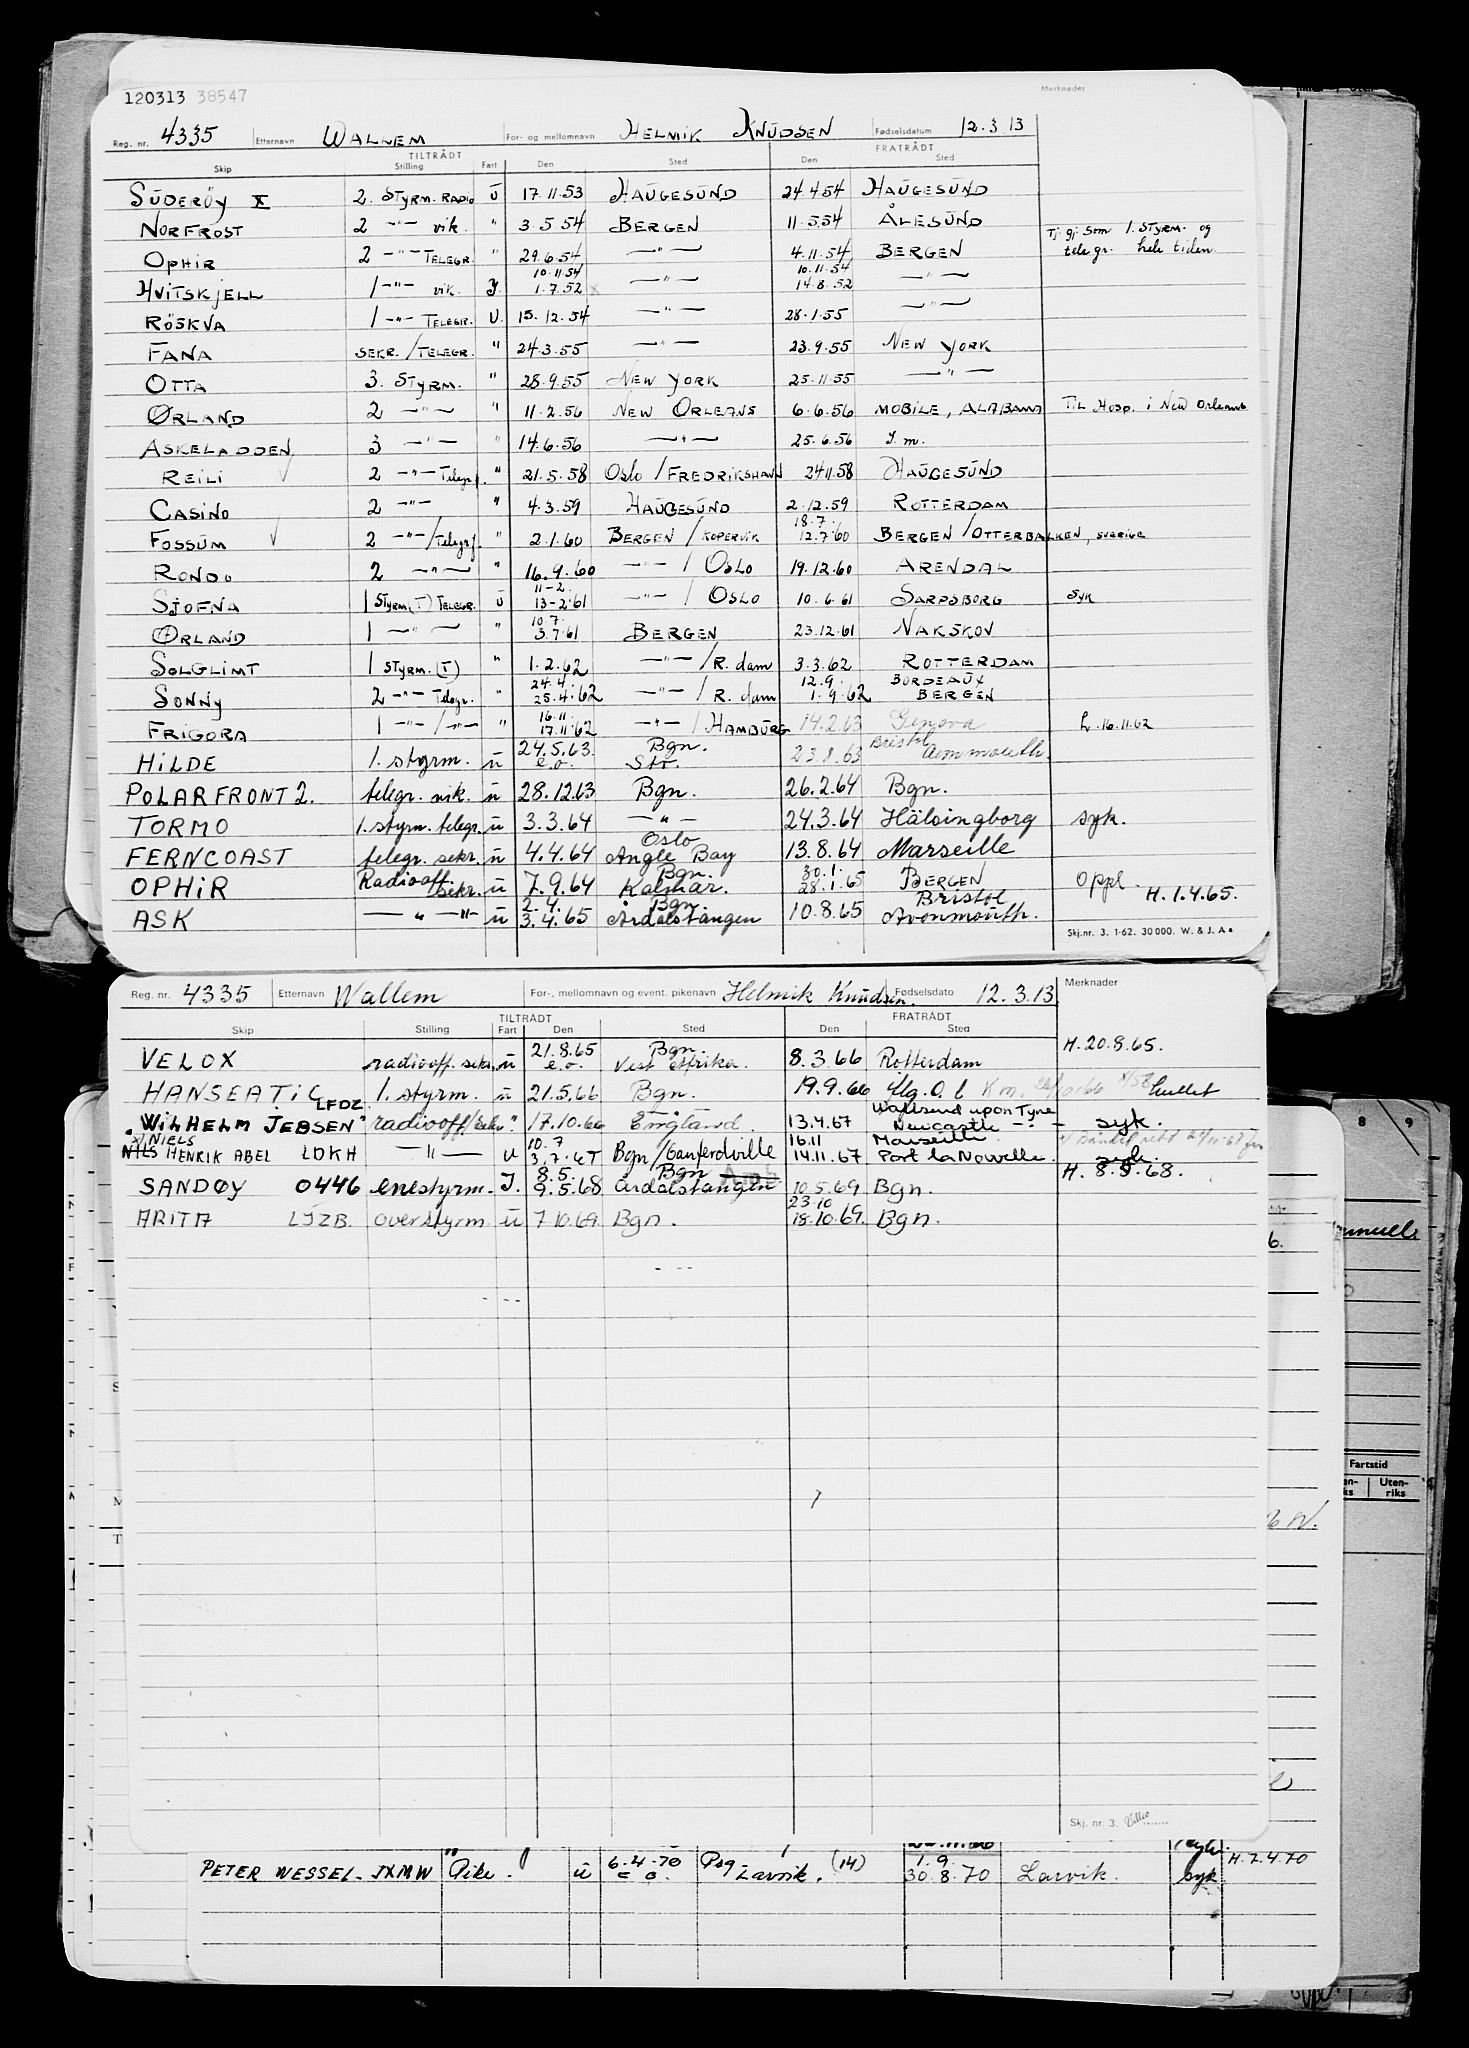 120313 38547
Merknader
Reg. nr. 4335 Etternavn WALLEM For- og mellomnavn HELMIK KNUDSEN Fødselsdatum 12.3.13
TILTRÅDT FRATRÅDT
Skip Stilling Fart Den Sted Den Sted
SÜDERÖY X 2. STYRM. RADIO Ü 17.11.53 HAUGESUND 24.4.54 HAUGESUND
NORFROST 2 -"- vik. " 3.5.54 BERGEN 11.5.54 ÅLESUND Tj. gj. som 1. STYRM. og
OPHIR 2 -"- TELEGR. " 29.6.54 -"- 4.11.54 BERGEN telegr. hele tiden.
10.11.54 10.11.54
HVITSKJELL 1 -"- vik. J. 1.7.52 -"- 14.8.52 -"-
RÖSKVA 1 -"- TELEGR. U. 15.12.54 -"- 28.1.55 -"-
FANA SEKR./TELEGR. " 24.3.55 -"- 23.9.55 NEW YORK
OTTA 3. STYRM. " 28.9.55 NEW YORK 25.11.55 -"-
ØRLAND 2 -"- " 11.2.56 NEW ORLEANS 6.6.56 MOBILE, ALABAMA TIL HOSP. i NEW Orleans
ASKELADDEN 3 -"- " 14.6.56 -"- 25.6.56 J.m.
REILI 2 -"- Telegrf. " 21.5.58 Oslo / FREDRIKSHAVN 24.11.58 HAUGESUND
CASINO 2 -"- " 4.3.59 HAUGESUND 2.12.59 ROTTERDAM
18.7.
FOSSUM 2 -"-/Telegrf. " 2.1.60 BERGEN / KOPERVIK 12.7.60 BERGEN / OTTERBALKEN, SVERIGE
RONDO 2 -"- " 16.9.60 -"- / OSLO 19.12.60 ARENDAL
11-2.
SJOFNA 1 STYRM (T) TELEGR. Ü 13-2.61 -"- / OSLO 10.6.61 SARPSBORG SYK
10.7.
ØRLAND 1 -"- " 3.7.61 BERGEN 23.12.61 NAKSKOV
SOLGLIMT 1 STYRM. (T) " 1.2.62 -"- / R.dam 3.3.62 ROTTERDAM
24.4. 12.9. BORDEAUX
SONNY 2 -"- Telegr. " 25.4.62 -"- / R.dam 1.9.62 BERGEN
16.11.
FRIGORA 1 -"- / -"- " 17.11.62 -"- / HAMBURG 14.2.63 Genova h. 16.11.62
24.5.63. Bgn. Bristol
HILDE 1. styrm. ü e.o. Str. 23.8.63 Avonmouth.
POLARFRONT 2. telegr. vik. ü 28.12.63 Bgn. 26.2.64 Bgn.
TORMO 1. styrm. telegr. ü 3.3.64 -"- 24.3.64 Hälsingborg syk.
Oslo
FERNCOAST telegr. sekr. ü 4.4.64 Angle Bay 13.8.64 Marseille
Radiooff. Bgn. 30.1.
OPHIR sekr. ü 7.9.64 Kalmar. 28.1.65 BERGEN oppl. H.1.4.65.
2.4. Bgn. Bristol
ASK -"- -"- ü 3.4.65 Årdalstangen 10.8.65 Avonmouth.
Skj.nr. 3. 1-62. 30000. W. & J. A.
Reg. nr. 4335 Etternavn Wallem For-, mellomnavn og event. pikenavn Helmik Knudsen. Fødselsdato 12.3.13 Merknader
TILTRÅDT FRATRÅDT
Skip Stilling Fart Den Sted Den Sted
21.8.65 Bgn. H.20.8.65.
VELOX radiooff. sekr. ü e.o. Vest Afrika. 8.3.66 Rotterdam
HANSEATIC 1. styrm. ü 21.5.66 Bgn. 19.9.66
LFDZ Wallsend upon Tyne
"WILHELM JEBSEN" radiooff/sekr. " 17.10.66 England. 13.4.67 Newcastle -"- syk.
x/ NIELS 10.7 16.11 Marseille.
NILS HENRIK ABEL LDKH -"- U 3.7.67 Bgn/Ganferdville 14.11.67 Port la Nouvelle. syk.
8.5. Bgn H.8.5.68.
SANDØY 0446 enestyrm. J. 9.5.68 Årdalstangen 10.5.69 Bgn.
23.10
ARITA LJZB. overstyrm. ü 7.10.69. Bgn. 18.10.69. Bgn.
Skj. nr. 3.
8 9
Fartstid
Uten-
riks
6-4-70 1.9. H.7.4.70
PETER WESSEL. JXMW Pike. ü e o. Larvik. (14) 30.8.70 Larvik. syk